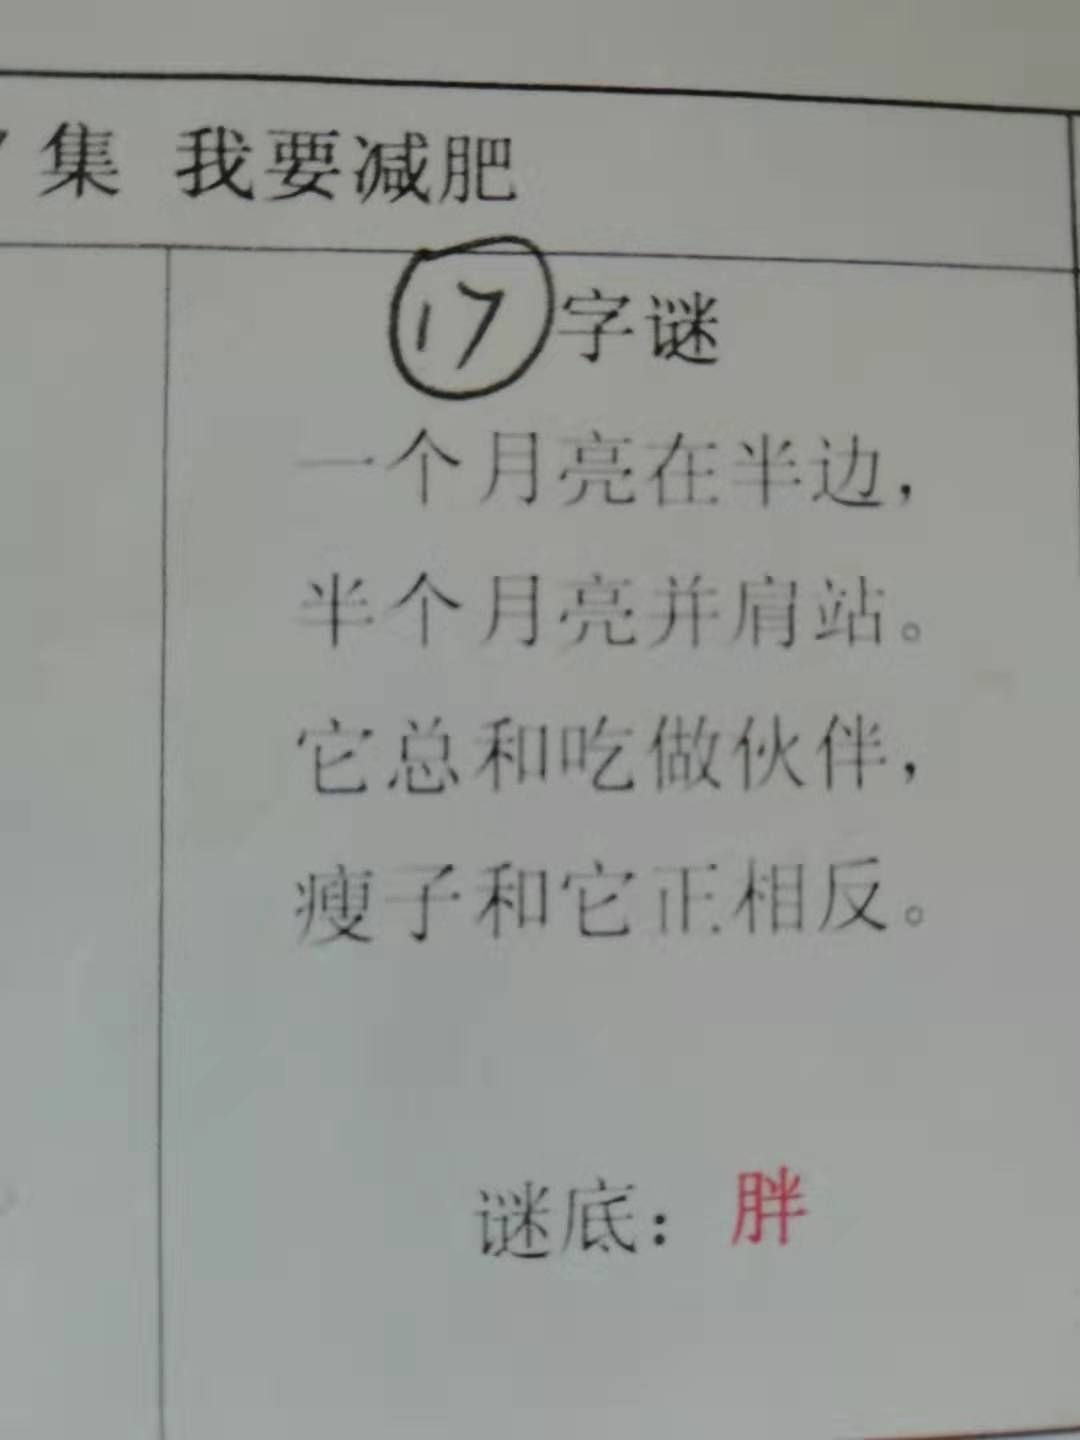 集 我要减肥
17 字谜
一个月亮在半边，
半个月亮并肩站。
它总和吃做伙伴，
瘦子和它正相反。
谜底：胖